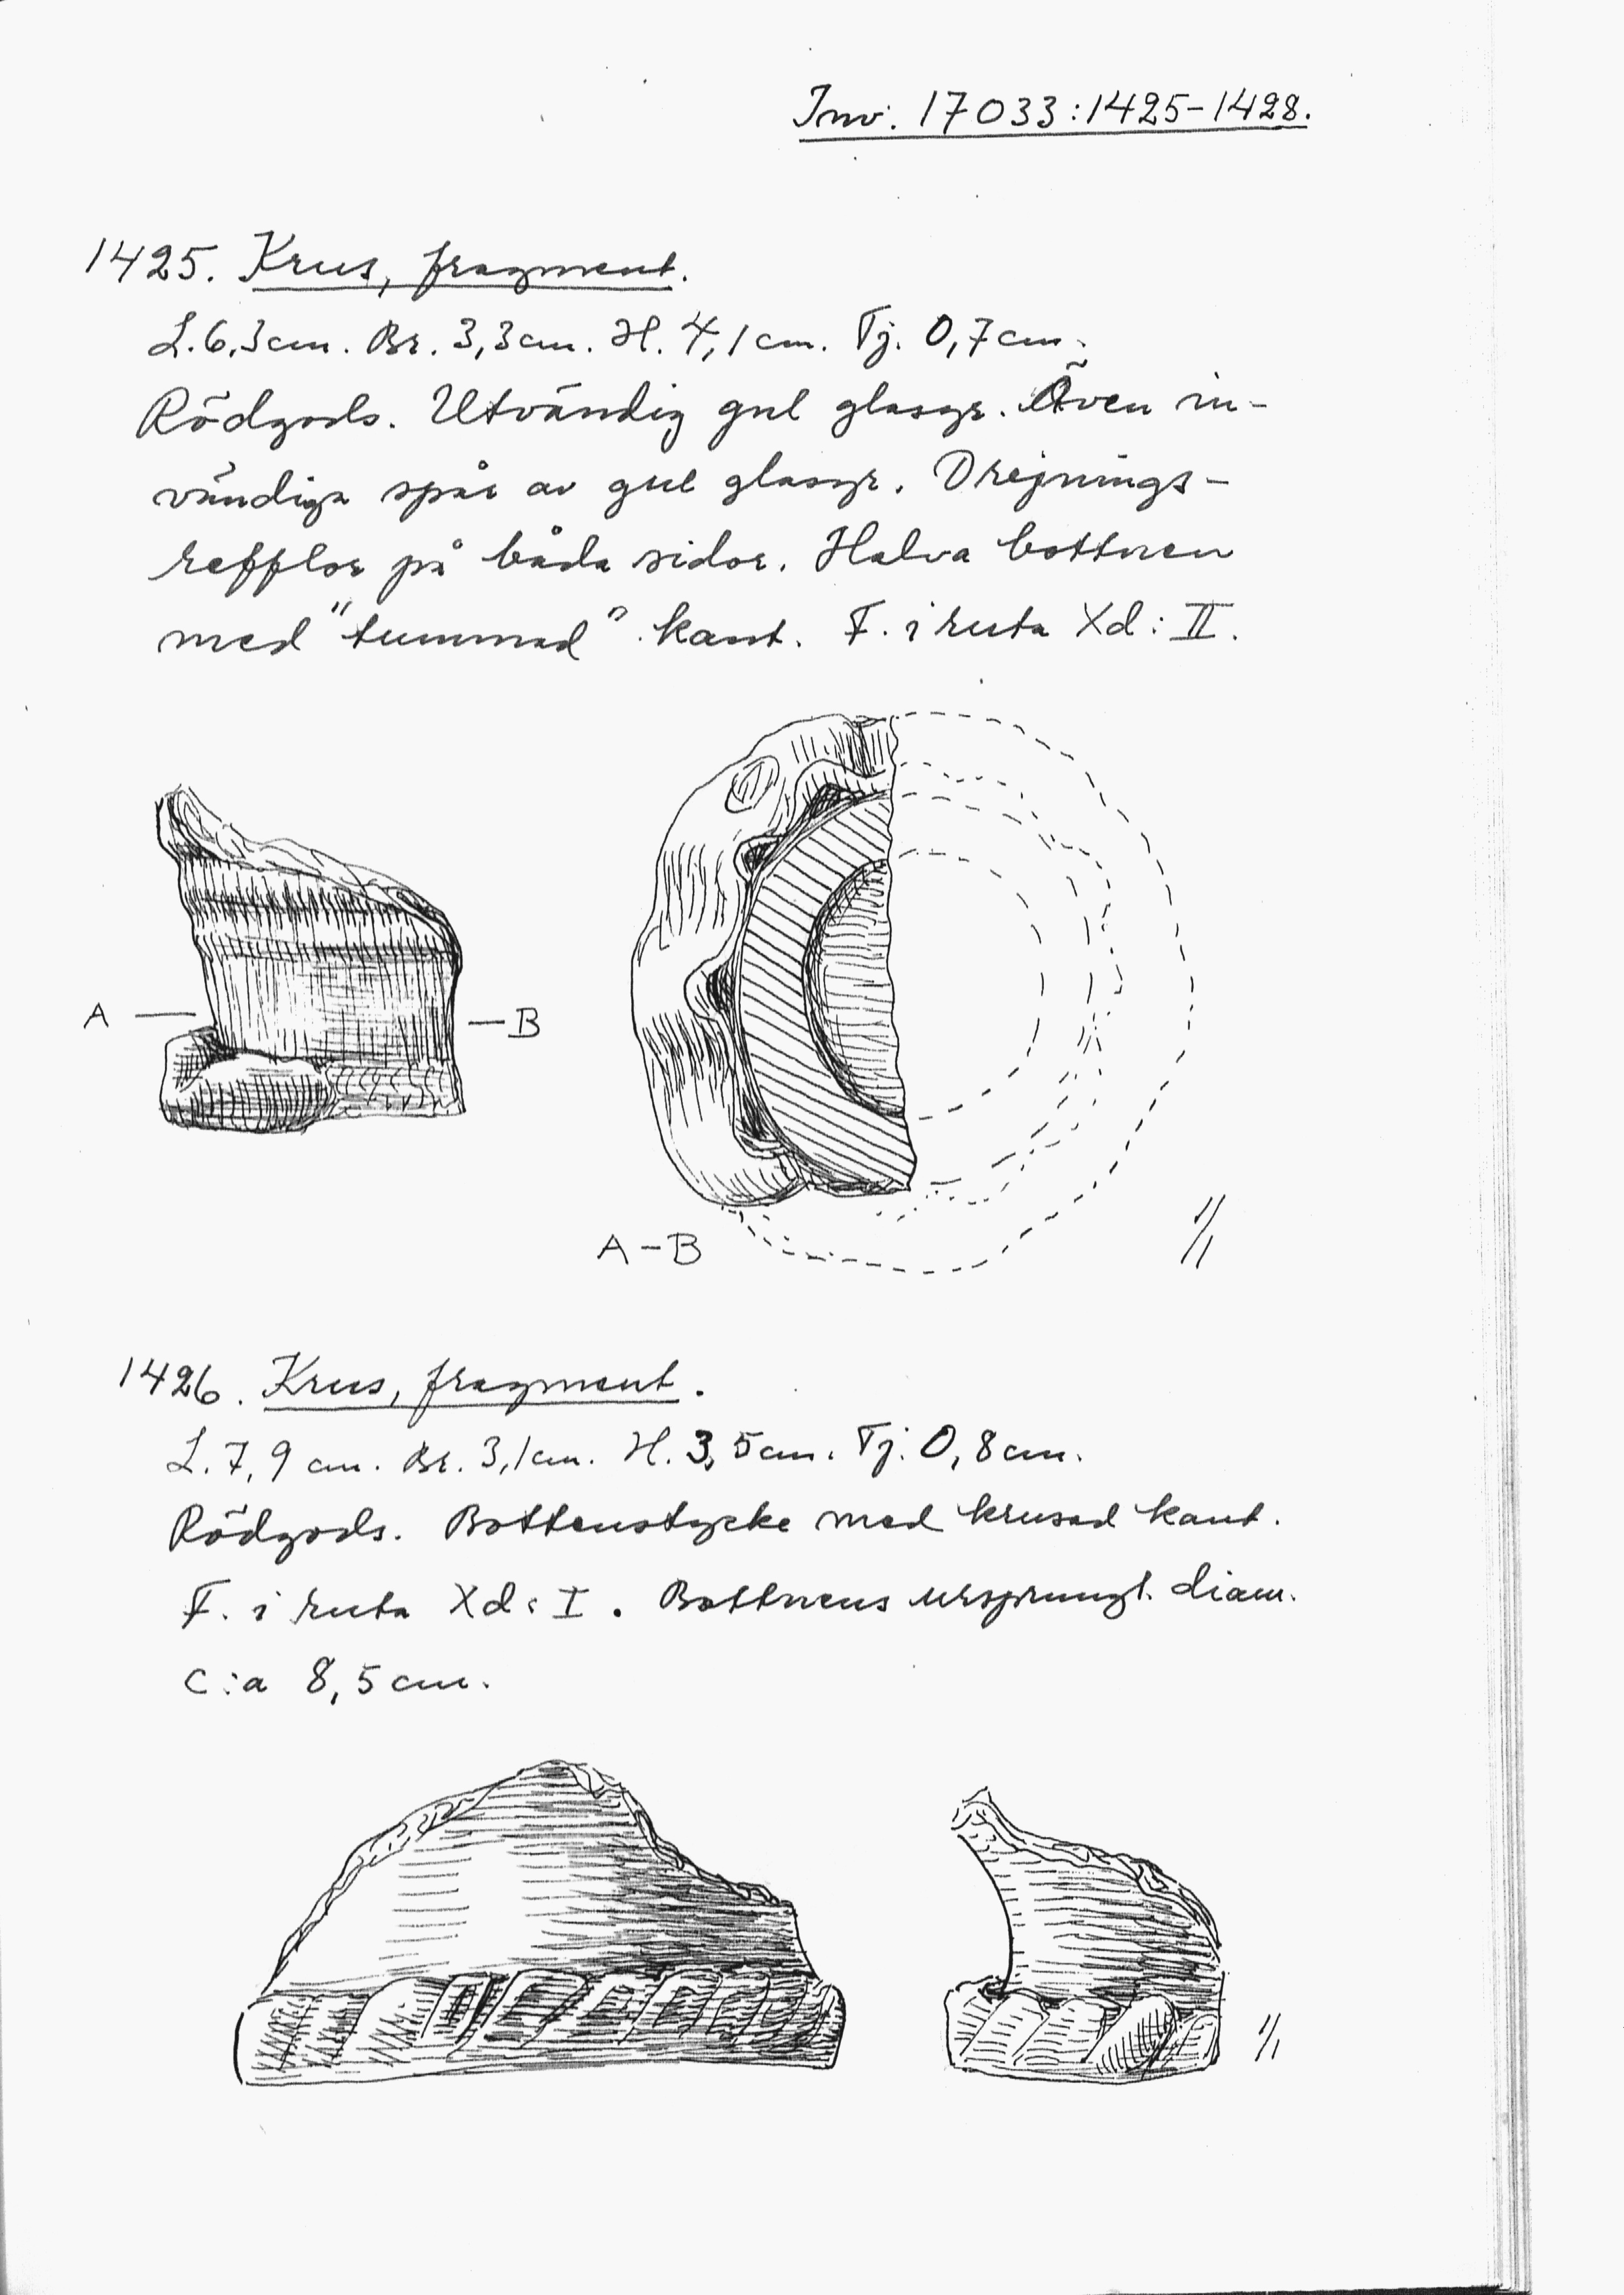 Inv. 17033:1425-1428.
1425. Krus, fragment.
L. 6,3 cm. Br. 3,3 cm. H. 4,1 cm. Tj. 0,7 cm.
Rödgods. Utvändig gul glasyr. Även in-
vändiga spår av gul glasyr. Drejnings-
refflor på båda sidor. Halva bottnen
med "tummad" kant. F. i ruta Xd: II.
A — — B
A-B
1/1
1426. Krus, fragment.
L. 7,9 cm. Br. 3,1 cm. H. 3,5 cm. Tj. 0,8 cm.
Rödgods. Bottenstycke med krusad kant.
F. i ruta Xd: I. Bottnens ursprungl. diam.
c:a 8,5 cm.
1/1